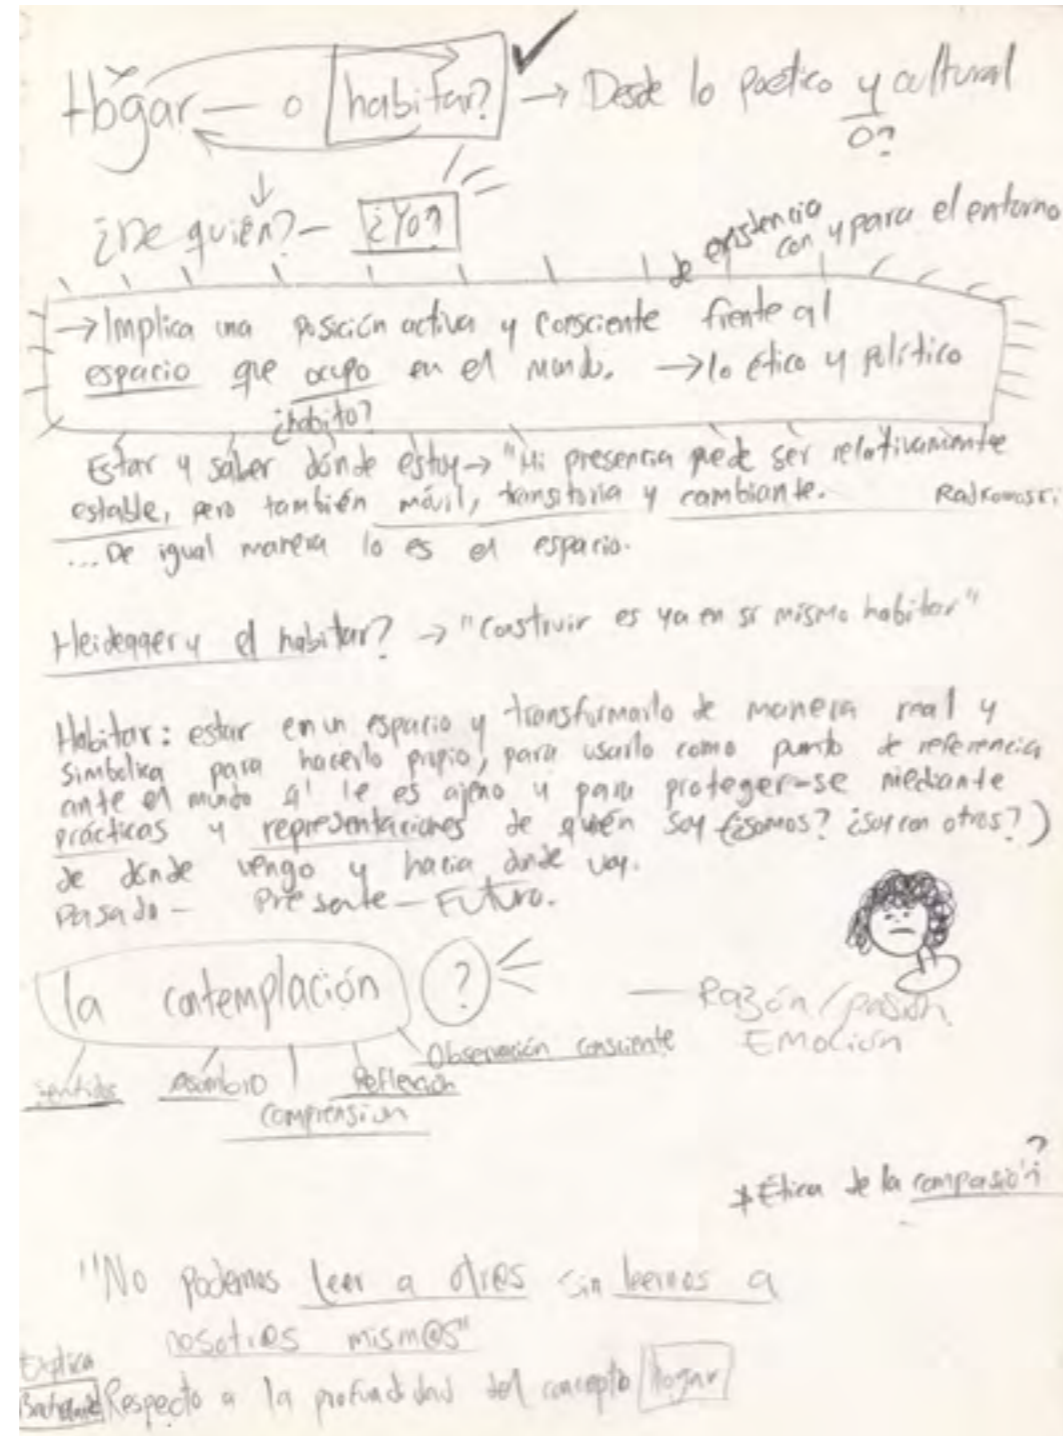 Hogar — o habitar? → Desde lo poético y cultural
o?
¿De quién? — ¿Yo?
de existencia
con y para el entorno
→ Implica una posición activa y consciente frente al
espacio que ocupo en el mundo. → lo ético y político
¿habito?
Estar y saber dónde estoy → "Mi presencia puede ser relativamente
estable, pero también móvil, transitoria y cambiante. Radkowski
... De igual manera lo es el espacio.
Heidegger y el habitar? → "Construir es ya en sí mismo habitar"
Habitar: estar en un espacio y transformarlo de manera real y
simbolica para hacerlo propio, para usarlo como punto de referencia
ante el mundo q' le es ajeno y para proteger-se mediante
prácticas y representaciones de quién soy (¿somos? ¿soy con otros?)
de dónde vengo y hacia donde voy.
Pasado — Presente — Futuro.
la contemplación ?
— Razón / pasión
Emoción
Observación consciente
Sentidos Asombro Reflexión
comprensión
* Ética de la compasión?
"No podemos leer a otr@s sin leernos a
nosotr@s mism@s"
Explica
Respecto a la profundidad del concepto hogar